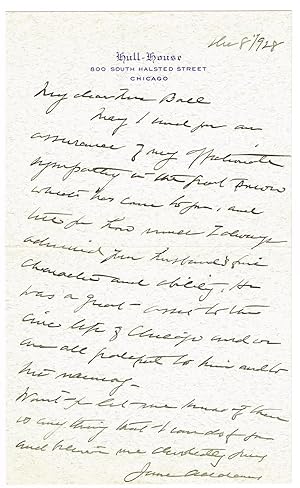 Dec 8" 1928
Hull-House
800 South Halsted Street
Chicago
My dear Mrs Ball
May I send you an
assurance of my affectionate
sympathy in the great sorrow
which has come to you, and
how much I always
admired your husband's fine
character and ability. He
was a great asset to the
civic life of Chicago and we
are all grateful to him and to
his memory -
Won't you let me know if there
is anything that I can do for you
and believe me always yours
Jane Addams